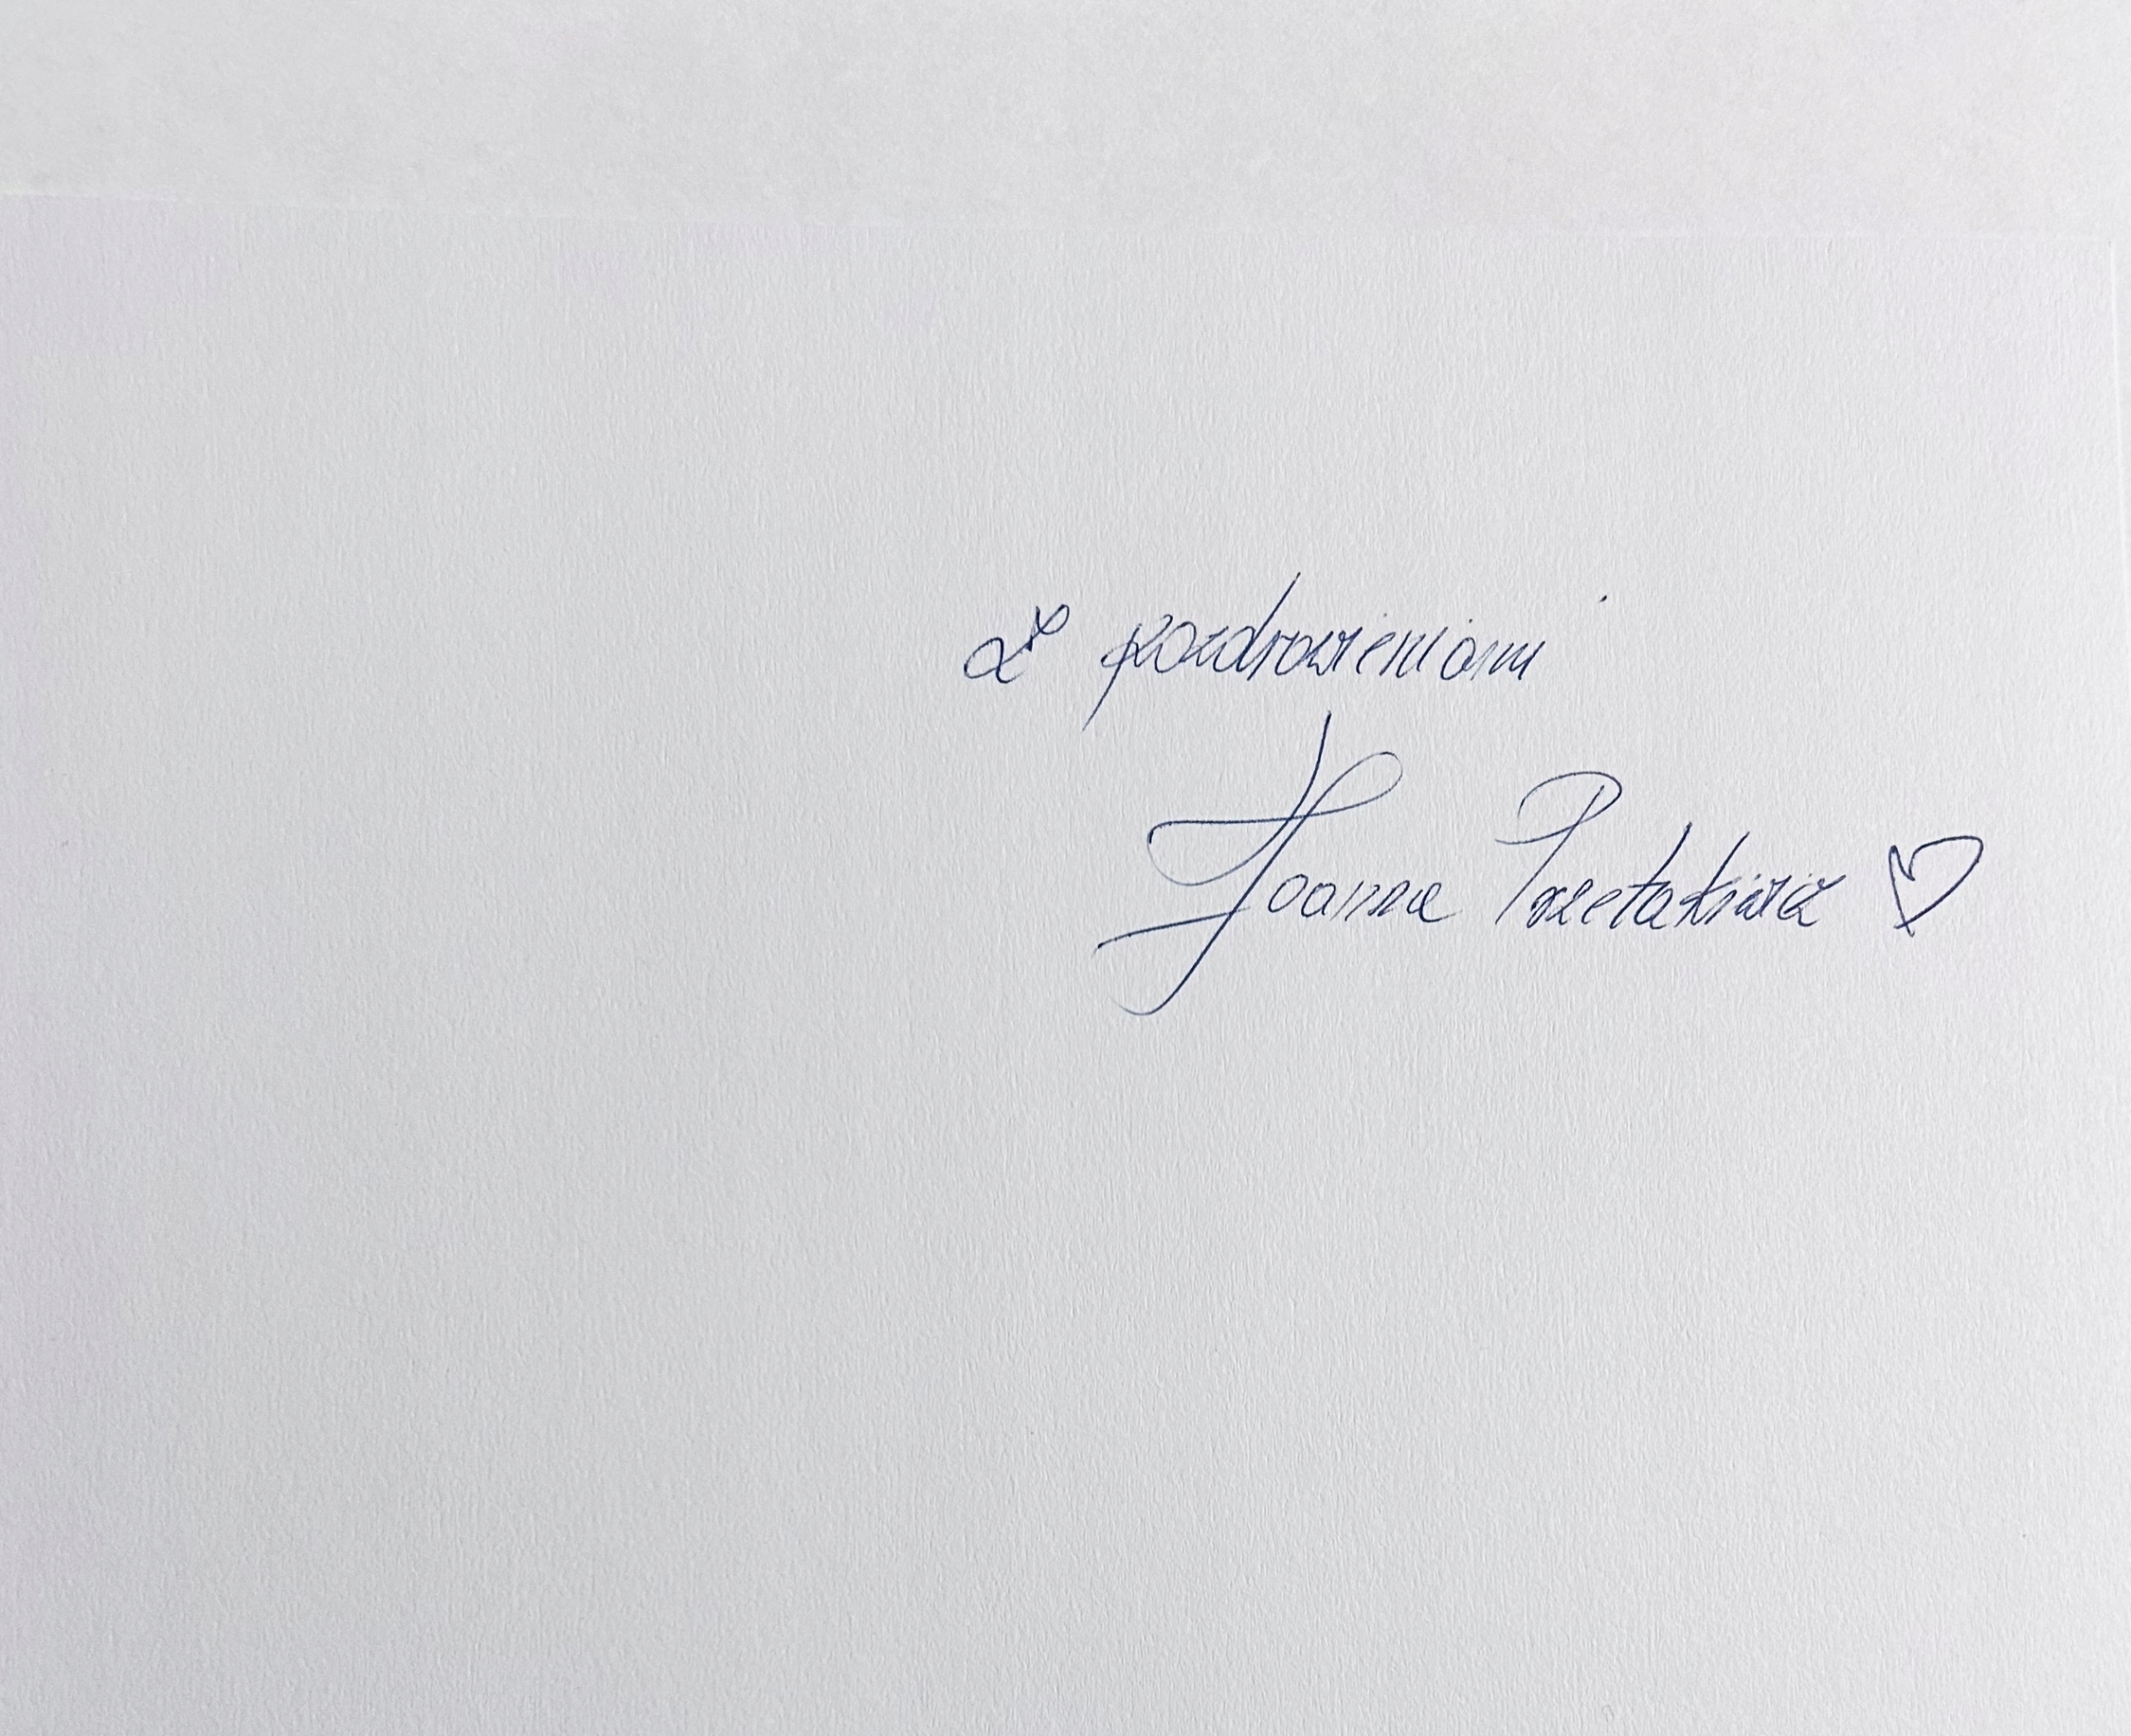 Z pozdrowieniami
Joanna Przetakiewicz ♡